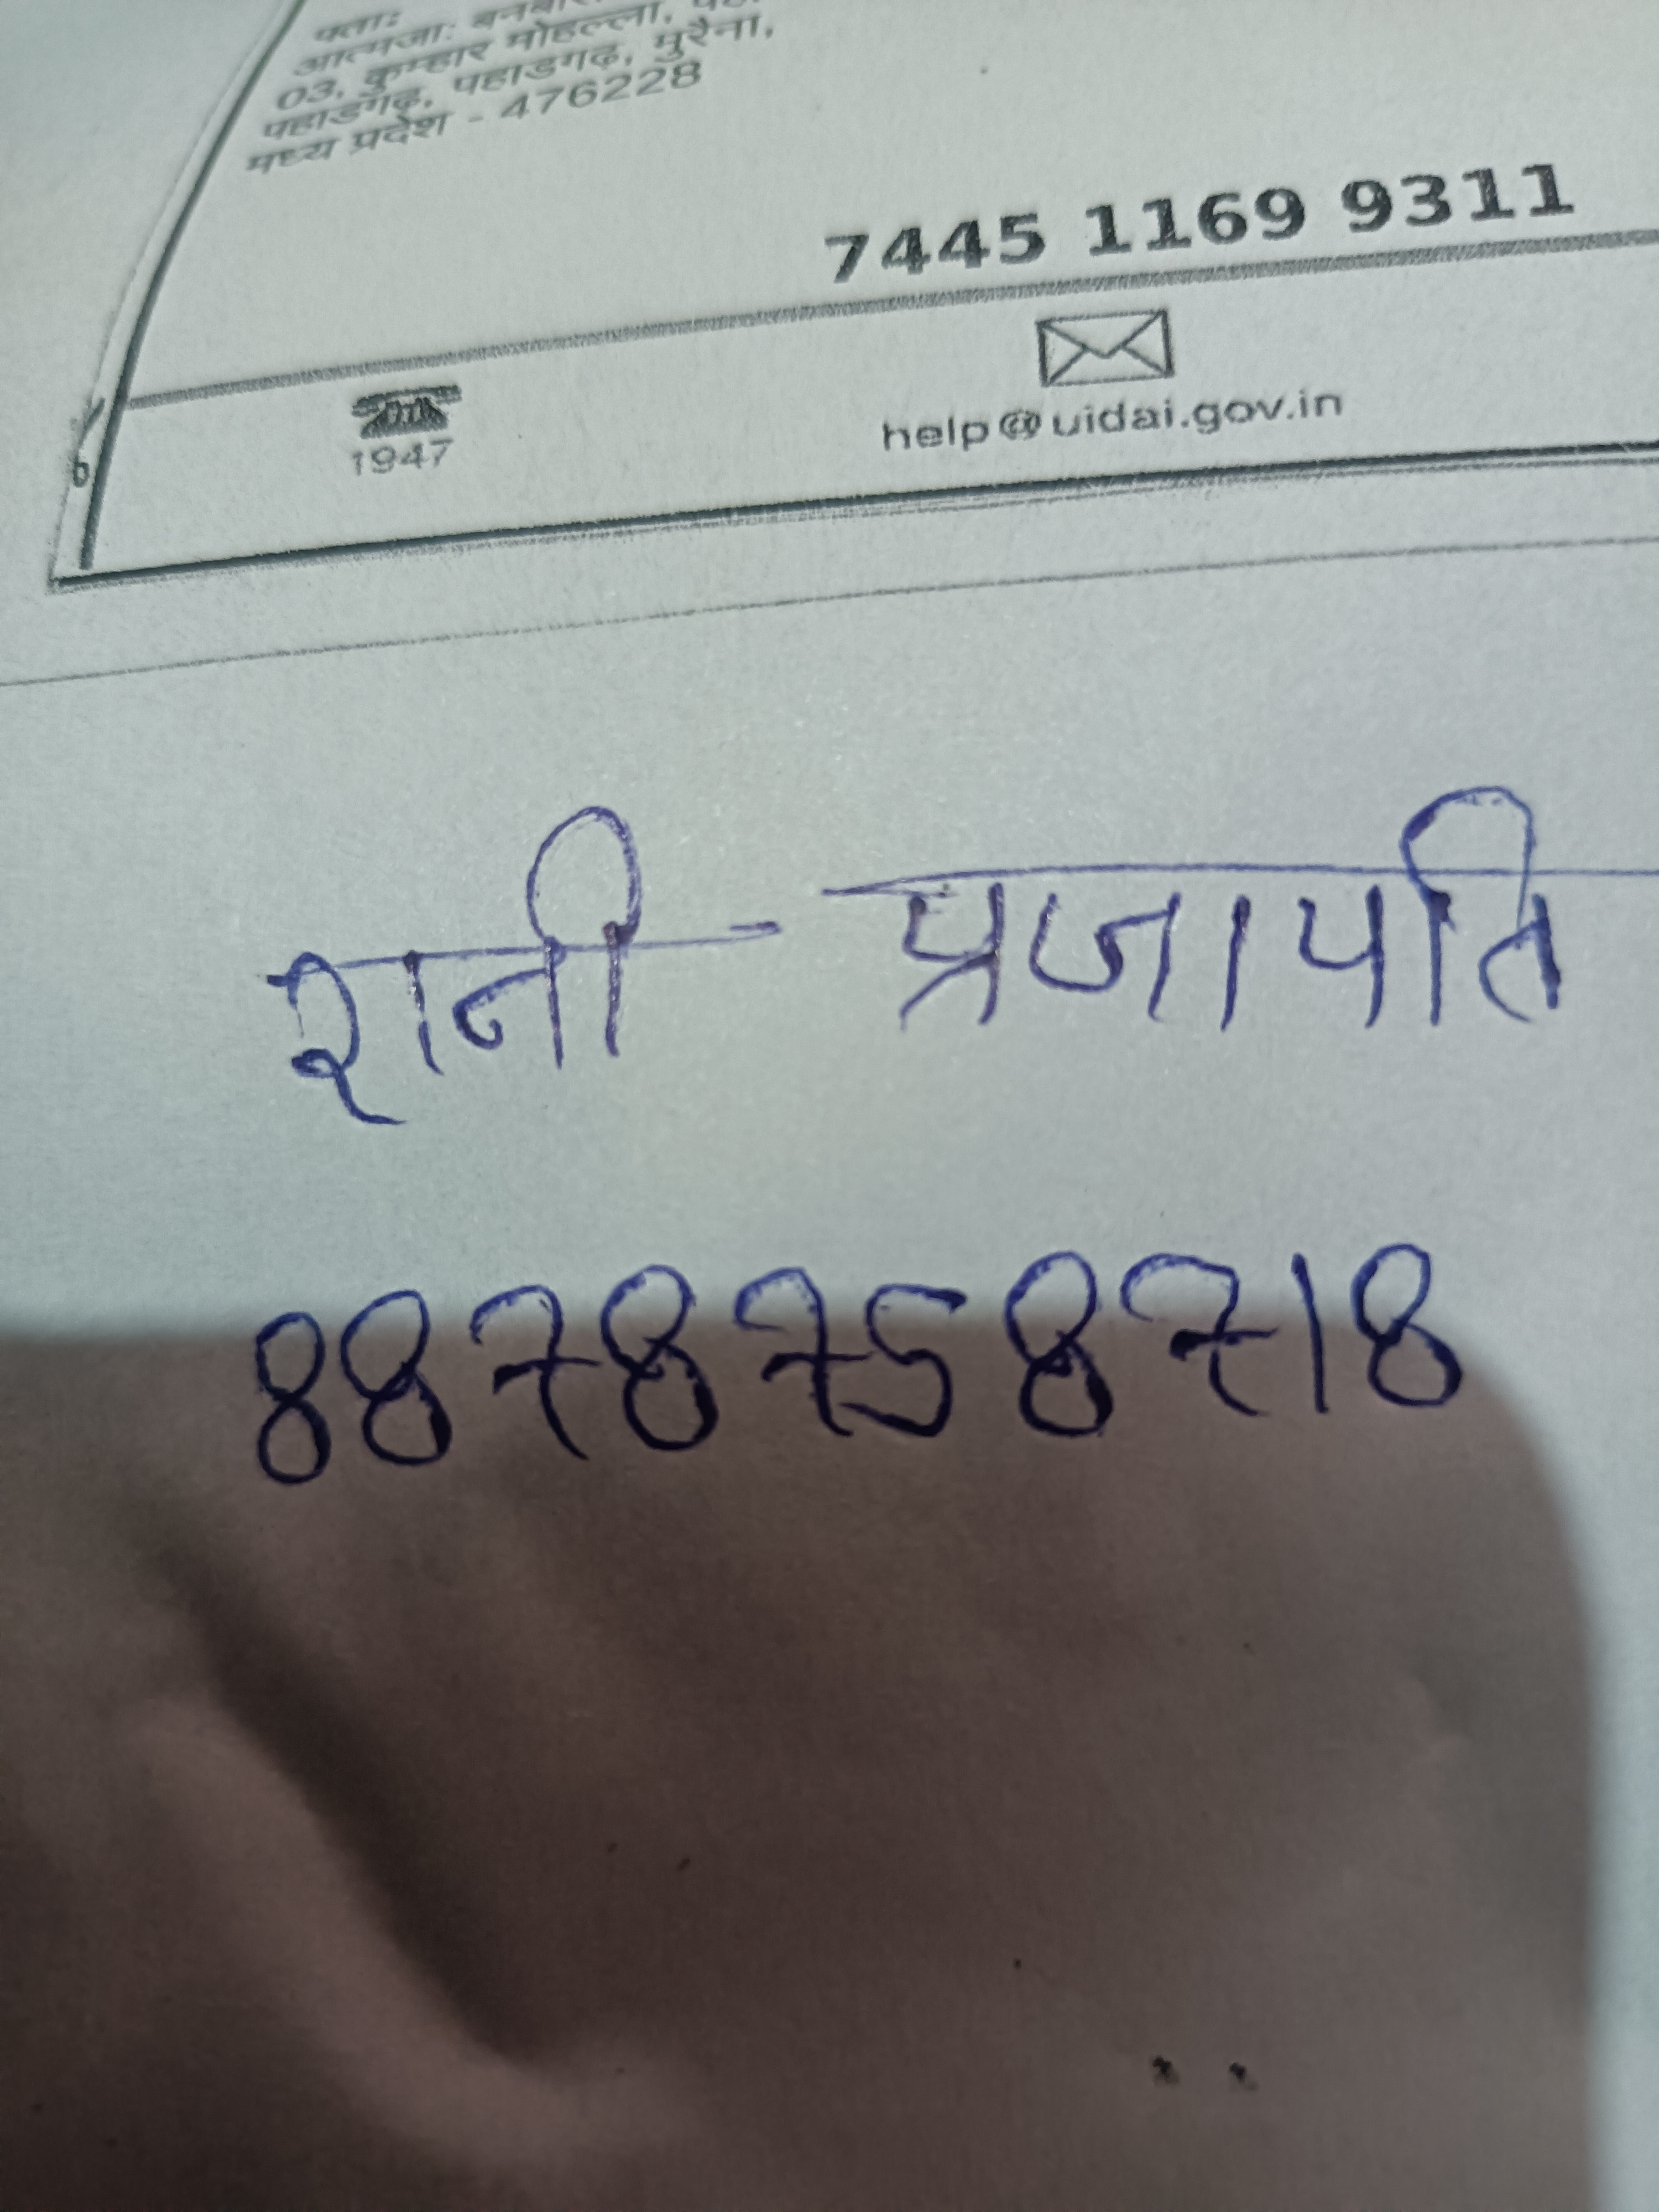 पता:
आत्मजा:
03, कुम्हार मोहल्ला,
पहाडगढ़, पहाडगढ़, मुरैना,
मध्य प्रदेश - 476228
7445 1169 9311
1947
help@uidai.gov.in
रानी - प्रजापति
8878758718